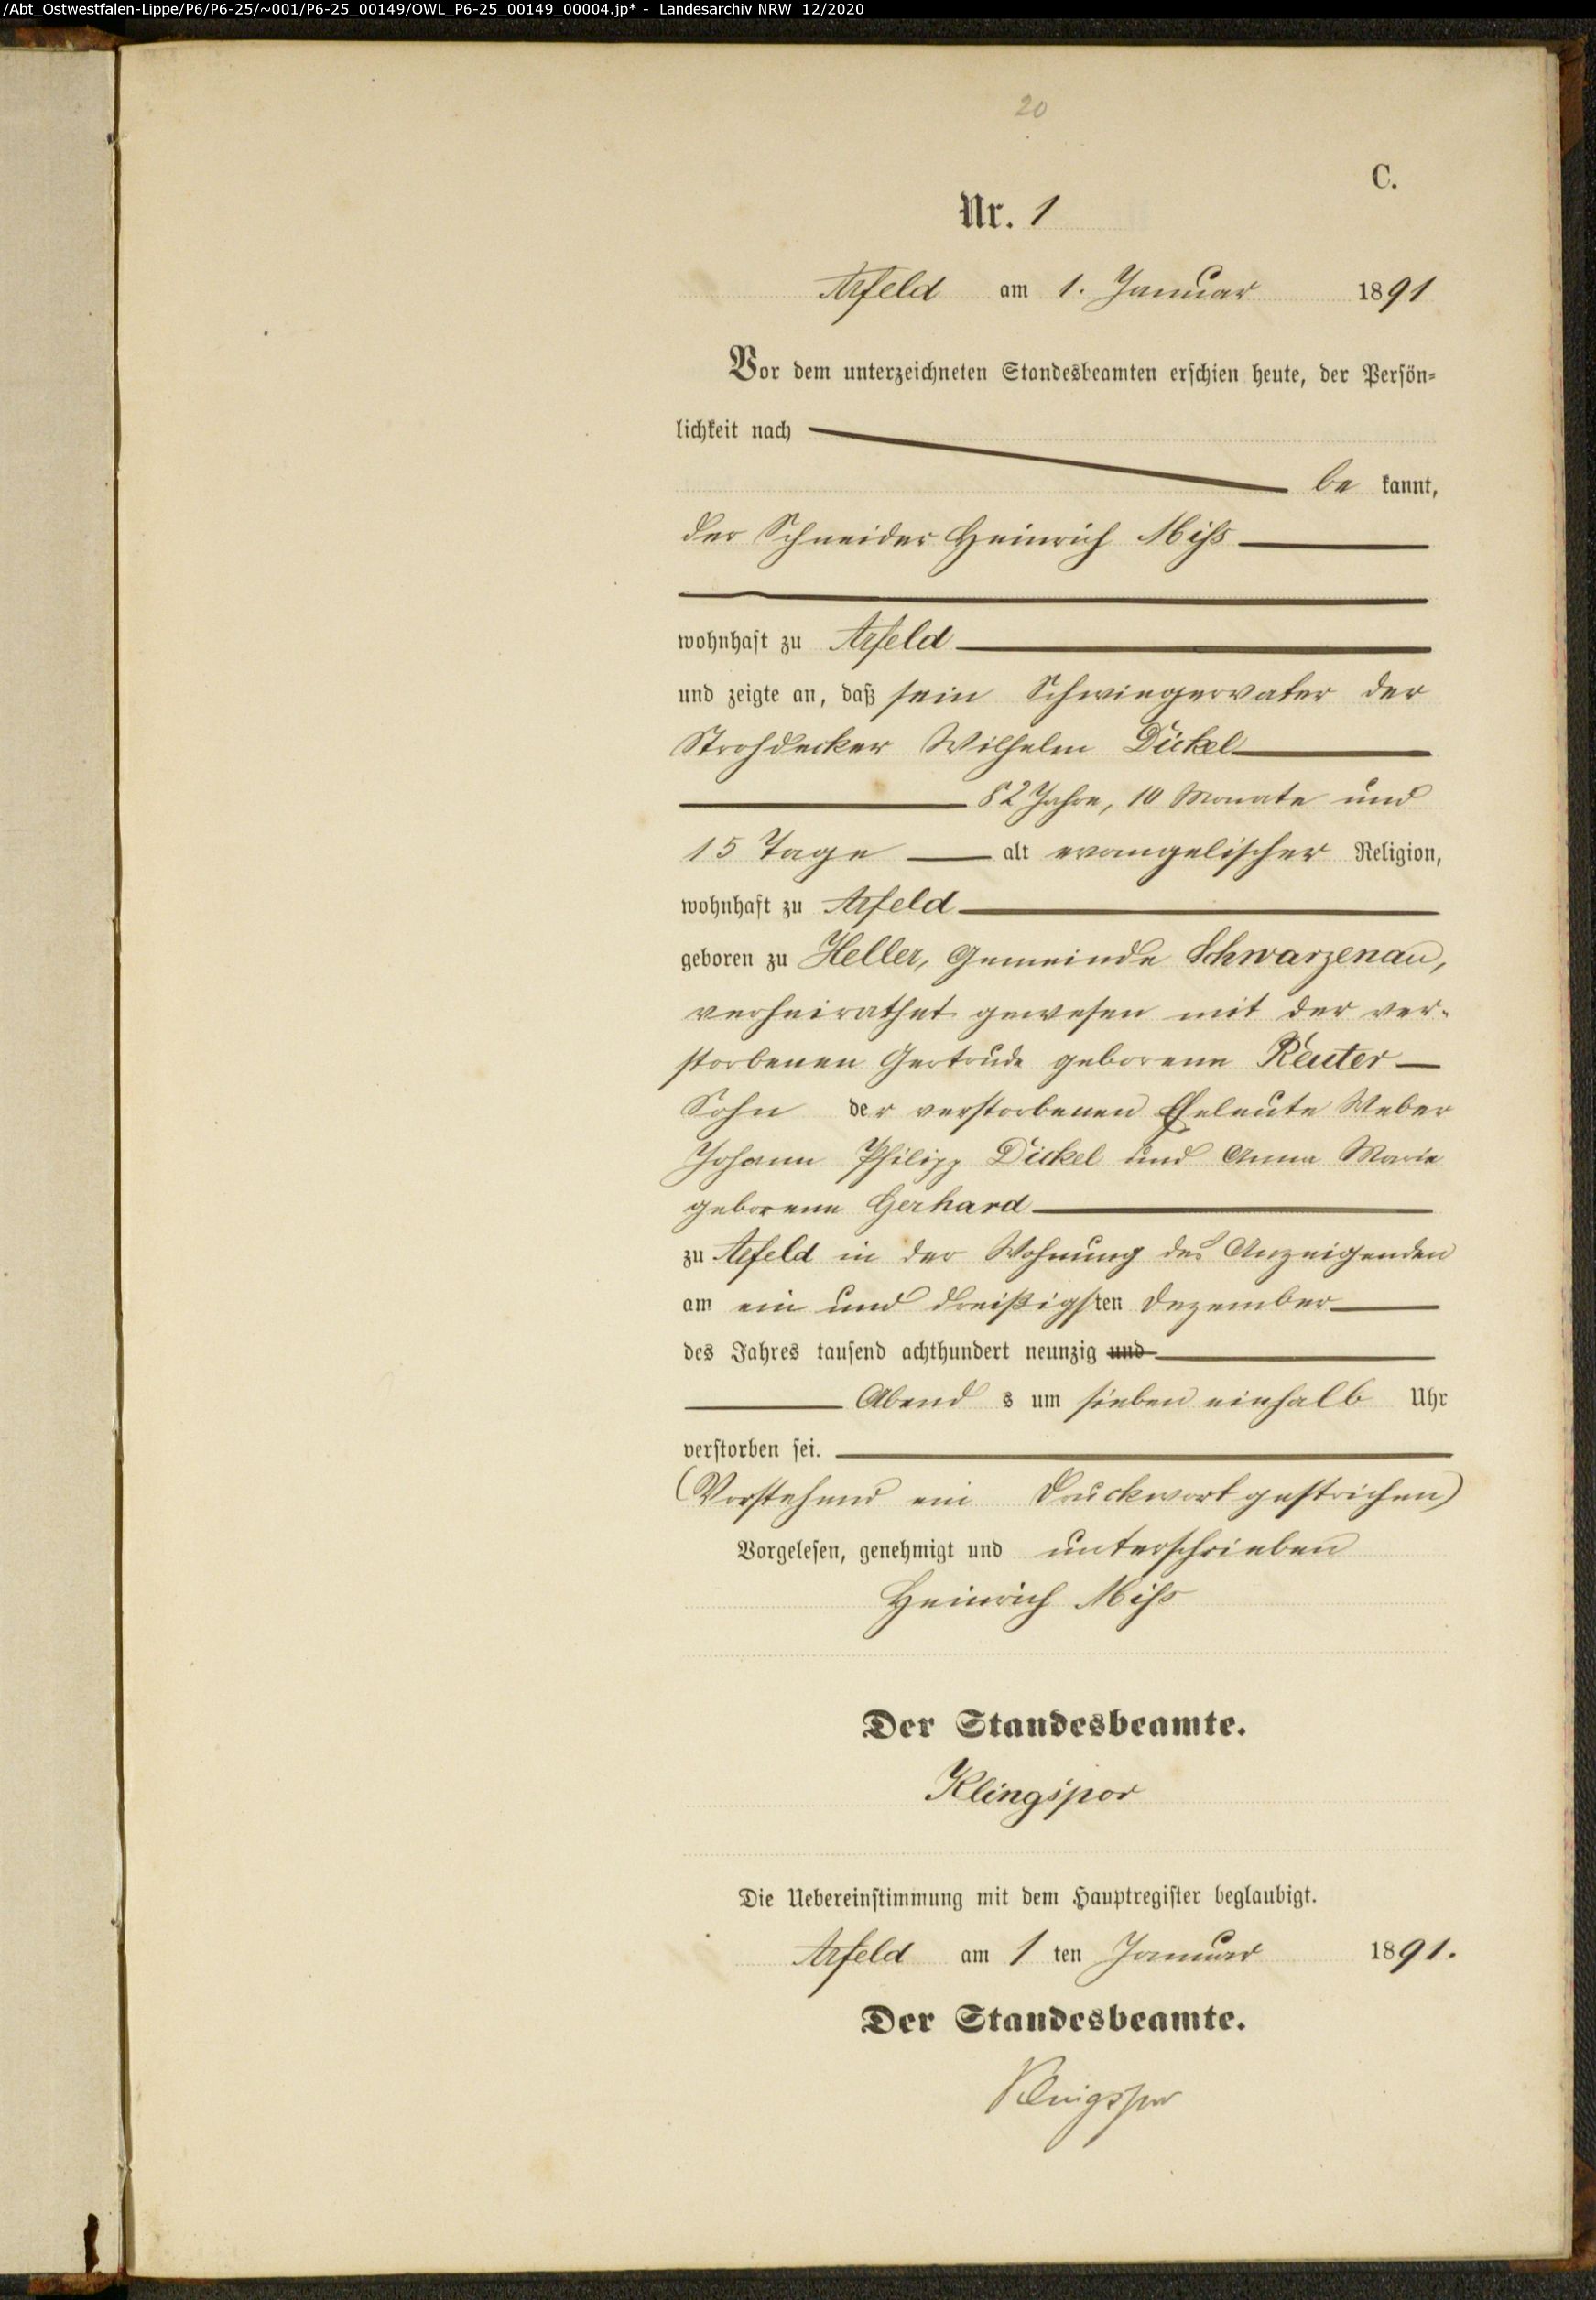 /Abt_Ostwestfalen-Lippe/P6/P6-25/~001/P6-25_00149/OWL_P6-25_00149_00004.jp* - Landesarchiv NRW 12/2020
20
C.
Nr. 1
Arfeld am 1. Januar 1891
Vor dem unterzeichneten Standesbeamten erschien heute, der Persön-
lichkeit nach
be kannt,
der Schneider Heinrich
wohnhaft zu Arfeld
und zeigte an, daß sein Schwiegervater der
Strohdecker Wilhelm Dickel
82 Jahre, 10 Monate und
15 Tage alt evangelischer Religion,
wohnhaft zu Arfeld
geboren zu Heller, Gemeinde Schwarzenau,
verheirathet gewesen mit der ver-
storbenen Gertrude geborene Reuter
Sohn der verstorbenen Eheleute Weber
Johann Philipp Dickel und Anna Marie
geborene Gerhard
zu Arfeld in der Wohnung des Anzeigenden
am ein und dreißigsten Dezember
des Jahres tausend achthundert neunzig und
Abend s um sieben einhalb Uhr
verstorben sei.
(Vorstehend ein Druckwort gestrichen)
Vorgelesen, genehmigt und unterschrieben
Heinrich
Der Standesbeamte.
Klingspor
Die Uebereinstimmung mit dem Hauptregister beglaubigt.
Arfeld am 1 ten Januar 1891.
Der Standesbeamte.
Klingspor